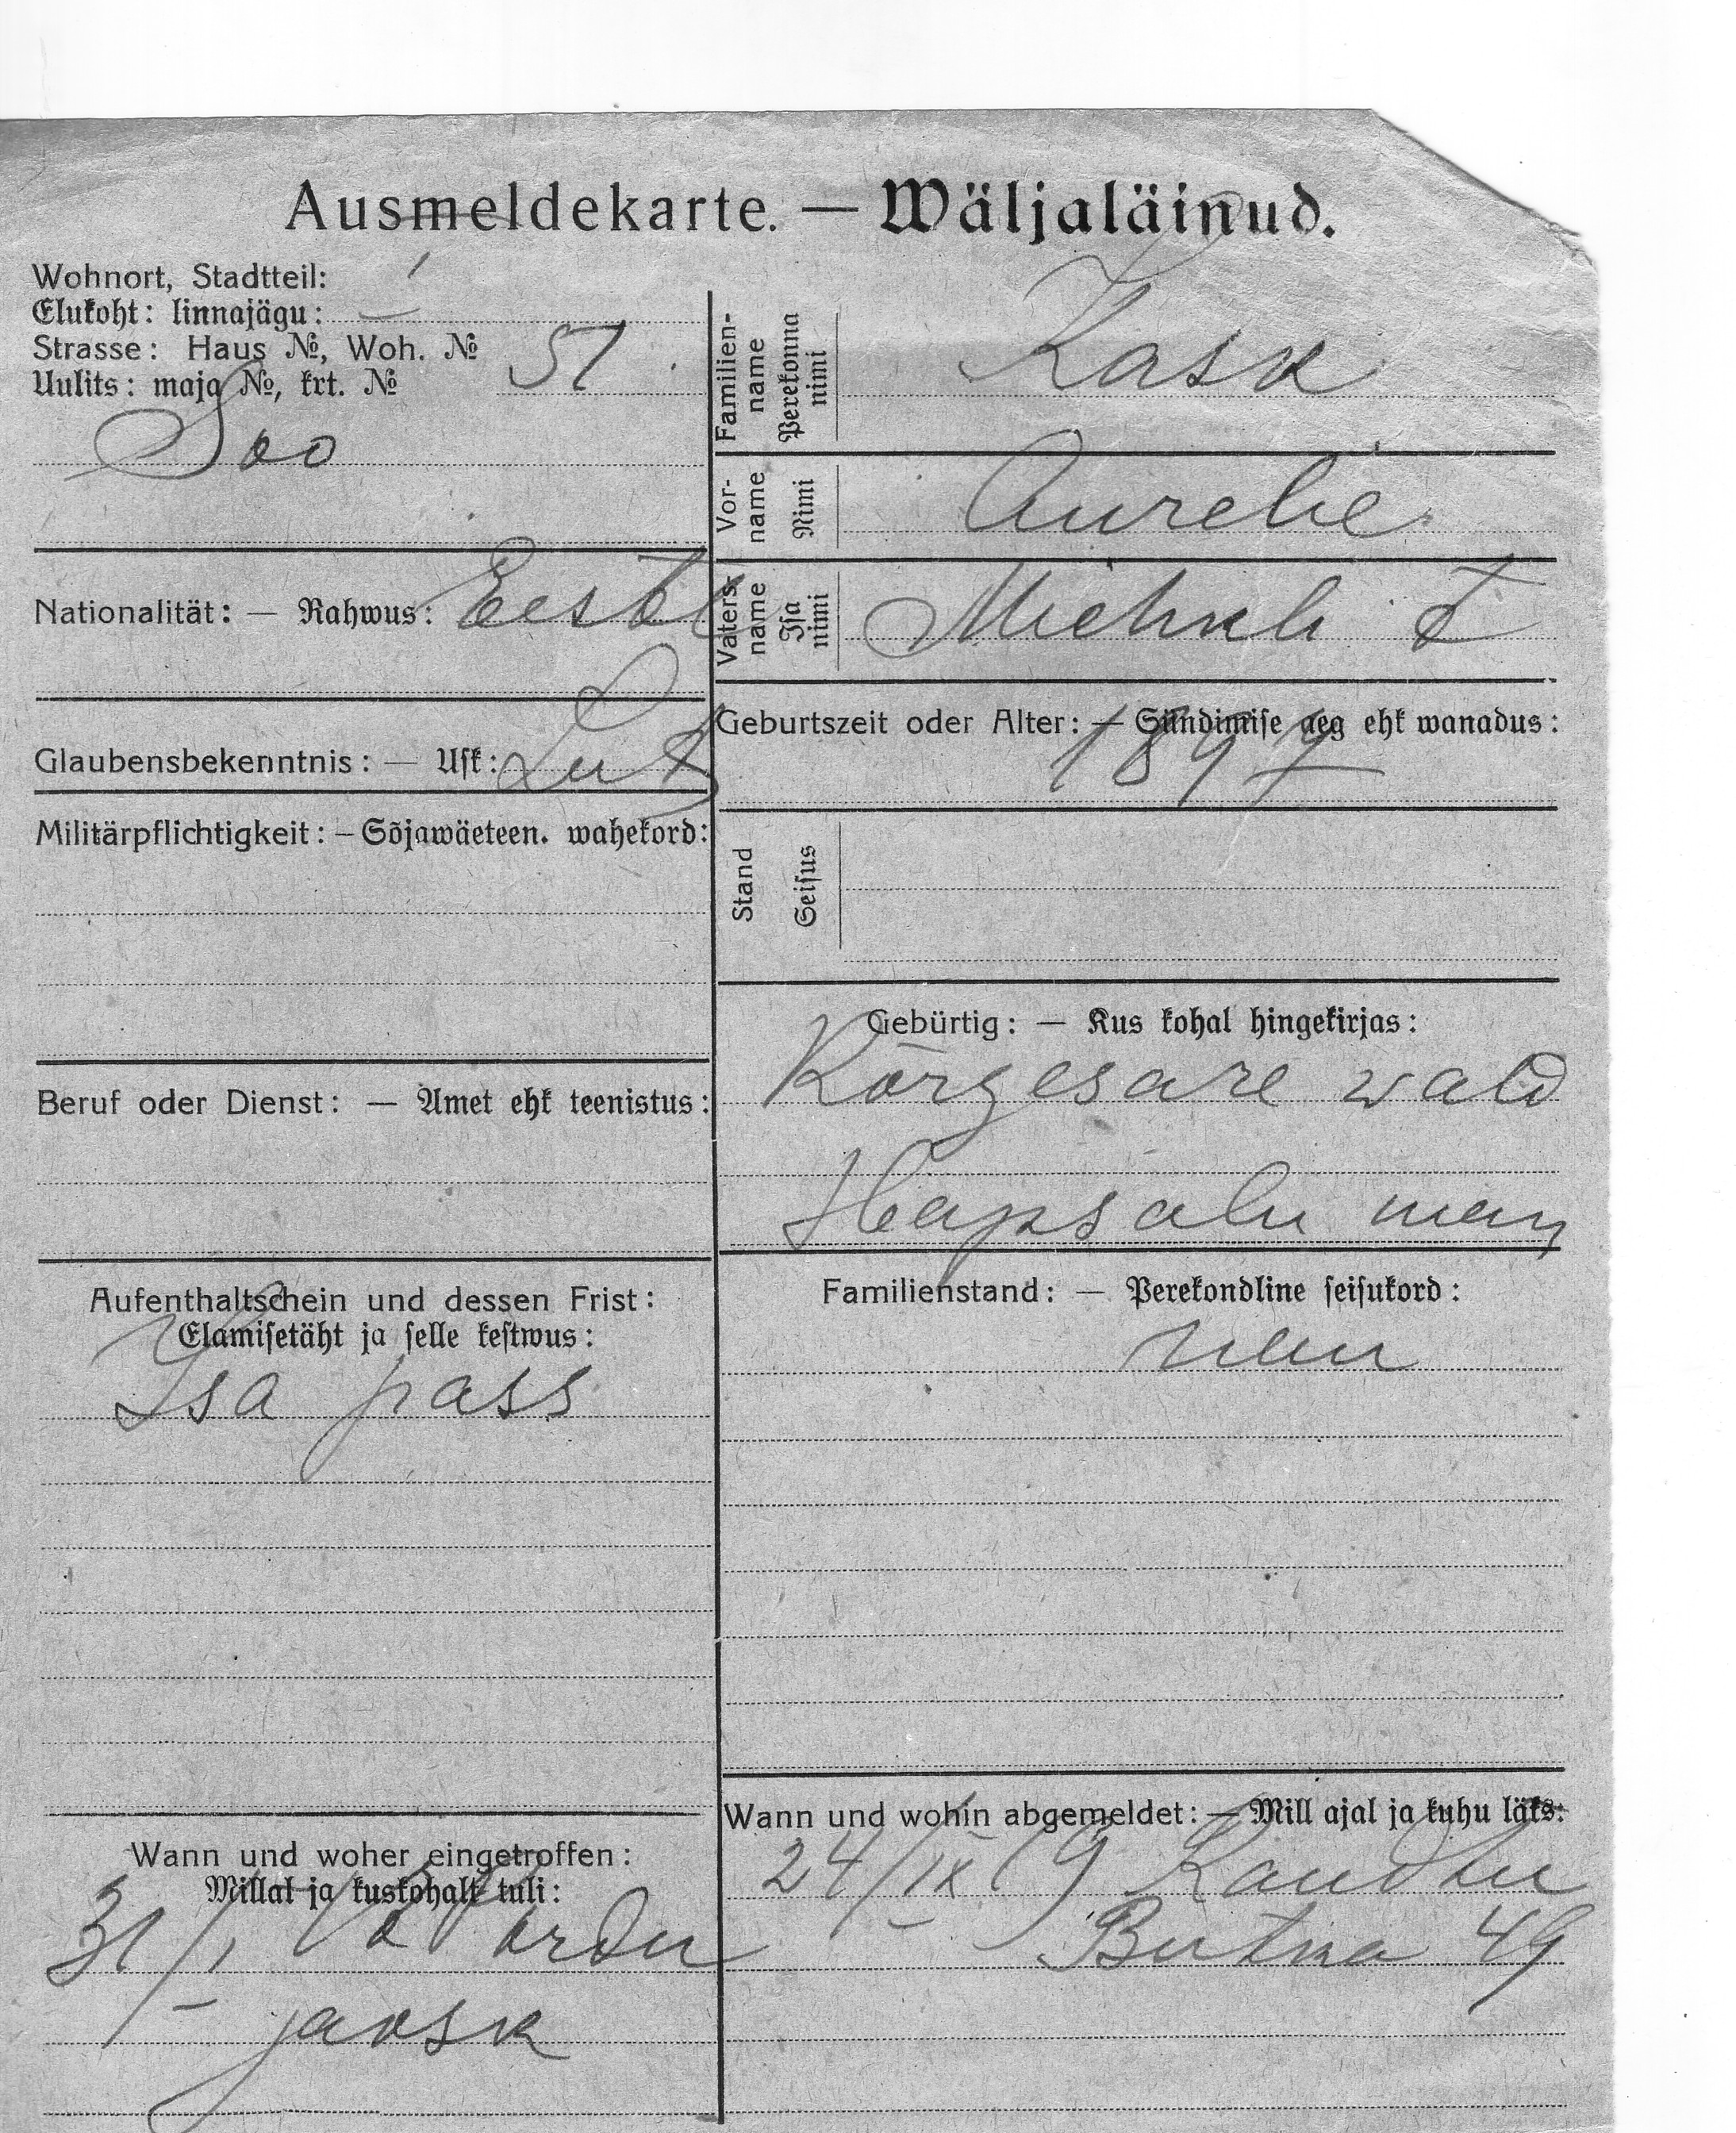 Ausmeldekarte. — Wäljaläinud.
Wohnort, Stadtteil:
Elukoht: linnajägu:
Strasse: Haus №, Woh. №
Uulits: maja №, krt. №
51
Soo
Nationalität: — Rahwus: Eesti
Lut
Glaubensbekenntnis: — Usk:
Militärpflichtigkeit: — Sõjawäeteen. wahekord:
Beruf oder Dienst: — Amet ehk teenistus:
Aufenthaltschein und dessen Frist:
Elamisetäht ja selle kestwus:
Isa pass
Wann und woher eingetroffen:
Millal ja kuskohalt tuli:
31/I
jaosk
Familien-
name
Perekonna
nimi
Kask
Vor-
name
Nimi
Aurelie
Vaters-
name
Isa
nimi
Michkli t
Geburtszeit oder Alter: — Sündimise aeg ehk wanadus:
1897
Stand
Seisus
Gebürtig: — Kus kohal hingekirjas:
Körgesare wald
Hapsalu
Familienstand: — Perekondline seisukord:
Wann und wohin abgemeldet: — Mill ajal ja kuhu läks:
24/IX 19
49